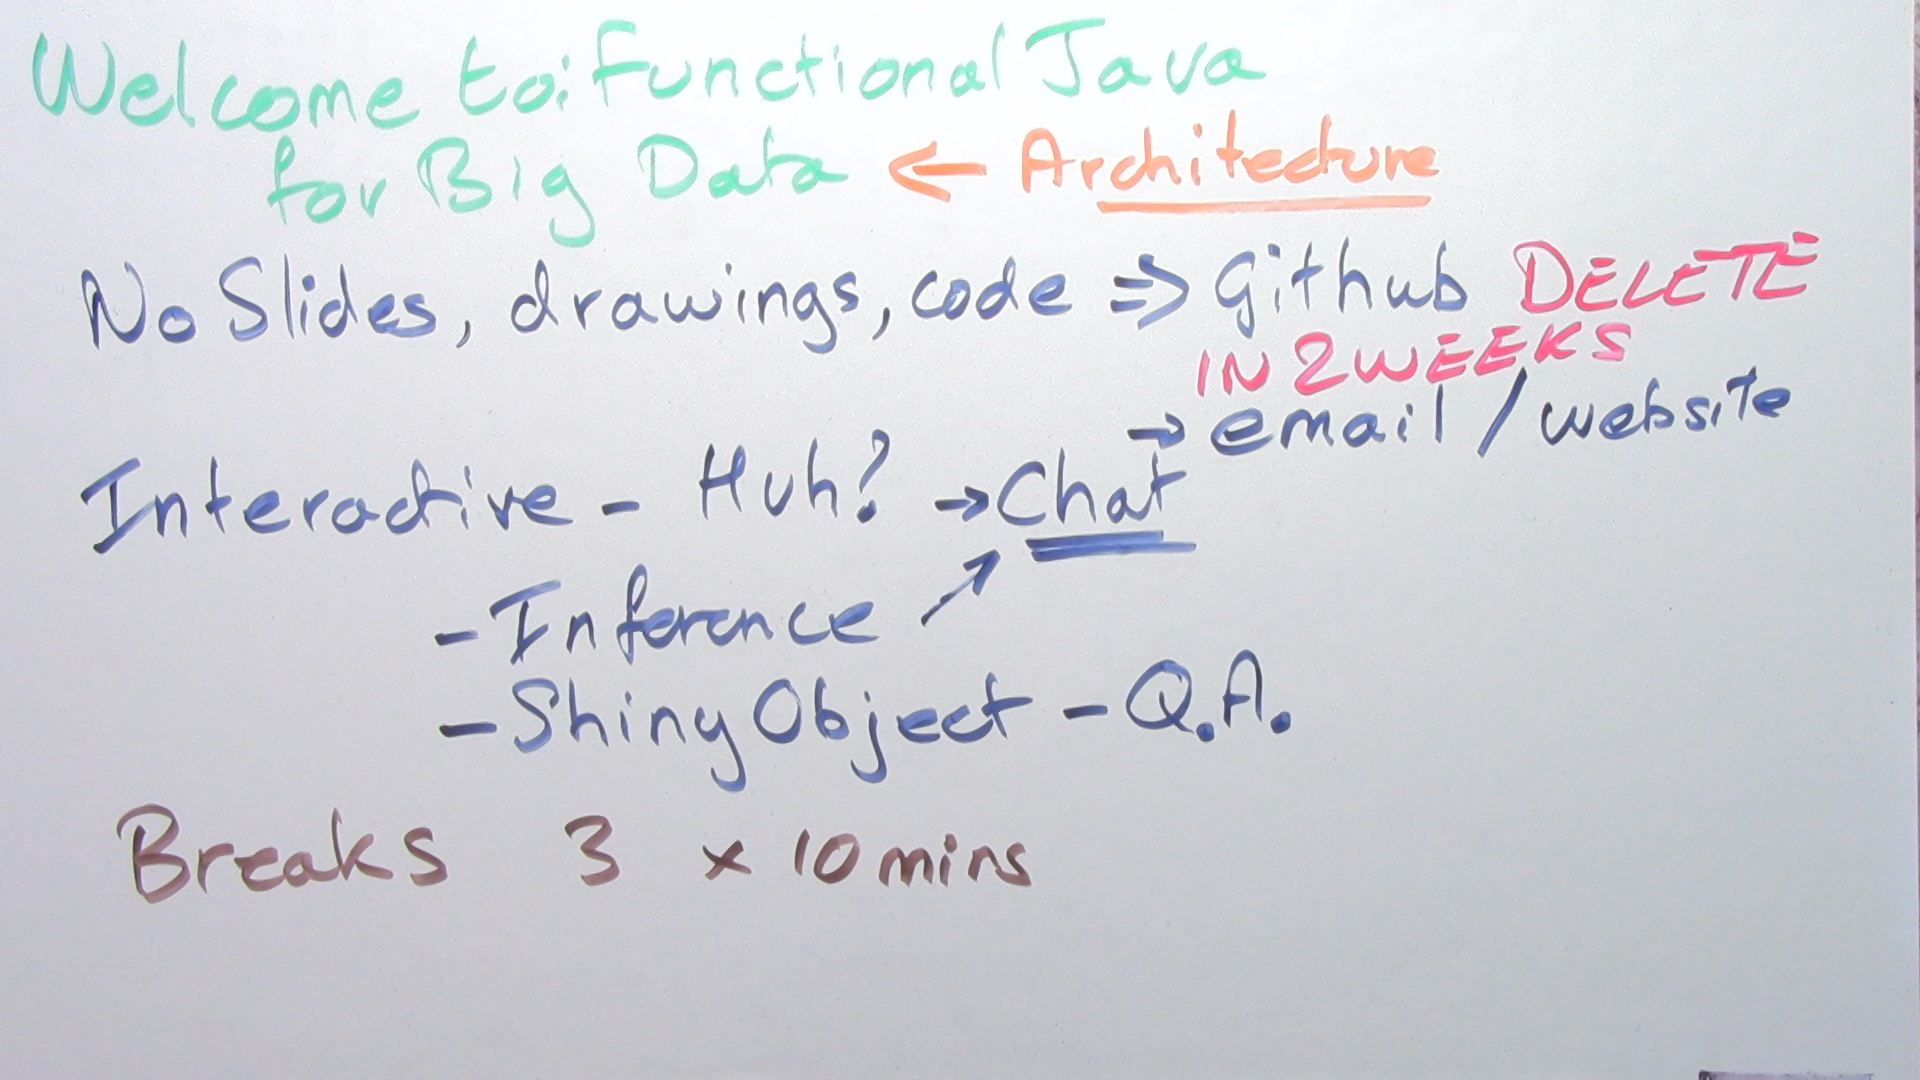 Welcome to: Functional Java
for Big Data ← Architecture
No Slides, drawings, code ⇒ Github DELETE
IN 2 WEEKS
→ email / website
Interactive - Huh? → Chat
- Inference ↗
- Shiny Object - Q.A.
Breaks 3 x 10 mins